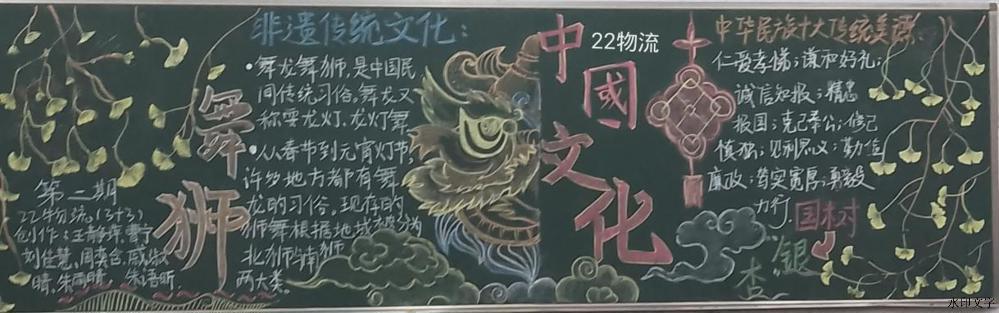 非遗传统文化:
•舞龙舞狮,是中国民
间传统习俗,舞龙又
称耍龙灯、龙灯舞
•从春节到元宵灯节,
许多地方都有舞
龙的习俗,现在的
狮舞根据地域被分为
北狮与南狮
两大类。
舞狮
第二期
22物流(3+3)
创作:王静琪
刘佳慧、周奕含
晴、朱雨晴、朱语昕
中國文化
22物流
中华民族十大传统美德
仁爱孝悌;谦和好礼;
诚信知报;精忠
报国;克己奉公;修己
慎独;见利思义;勤俭
廉政;笃实宽厚;勇毅
力行.
国树
银杏
水印文字